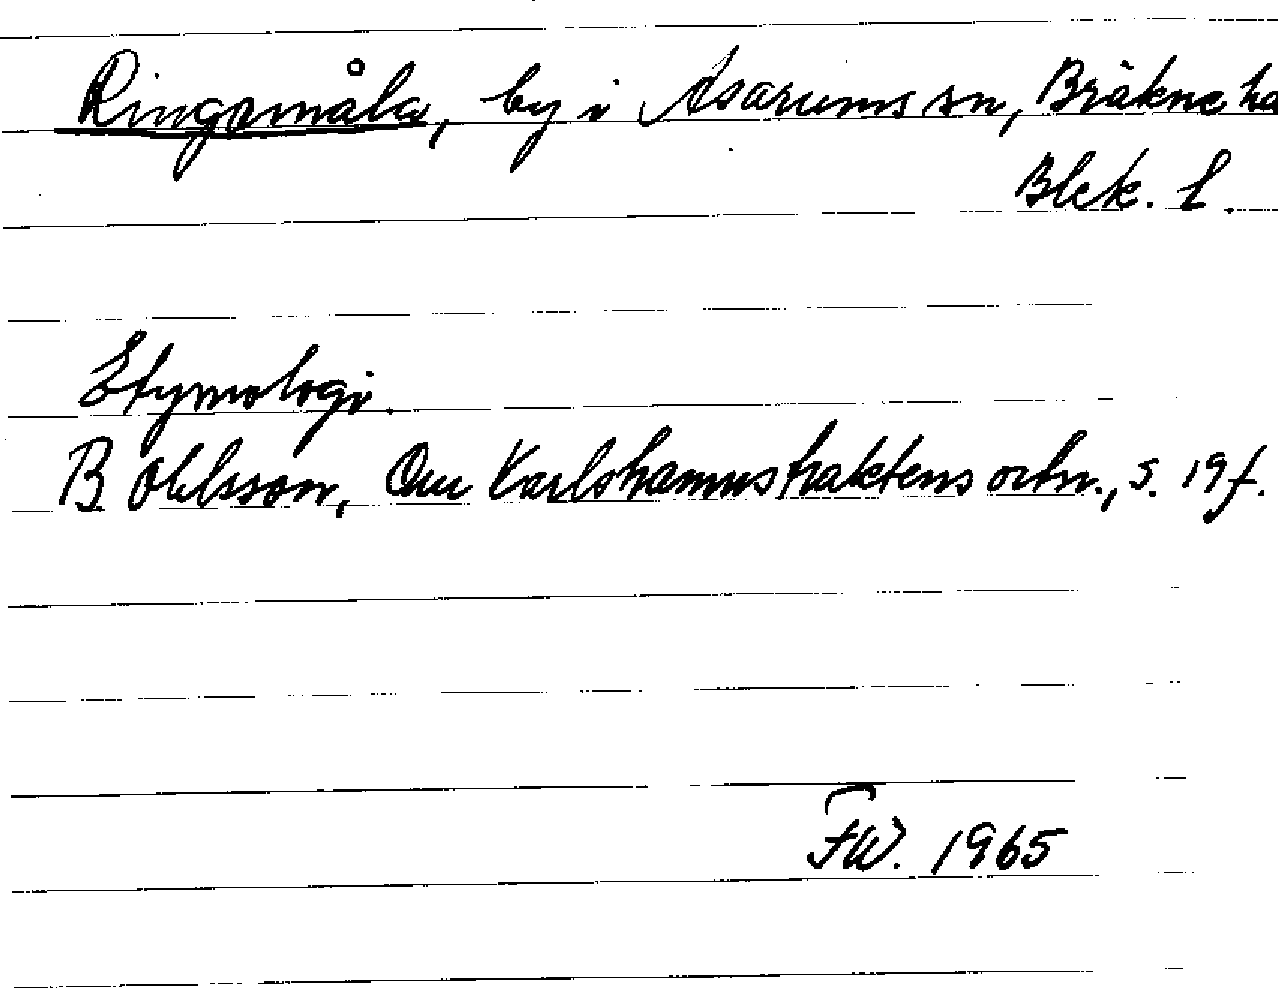 Ringsmåla, by i Asarums sn, Bräkne hd
Blek. l.
Etymologi.
B Ohlsson, Om Karlshamnstraktens ortn., s. 19 f.
FW. 1965